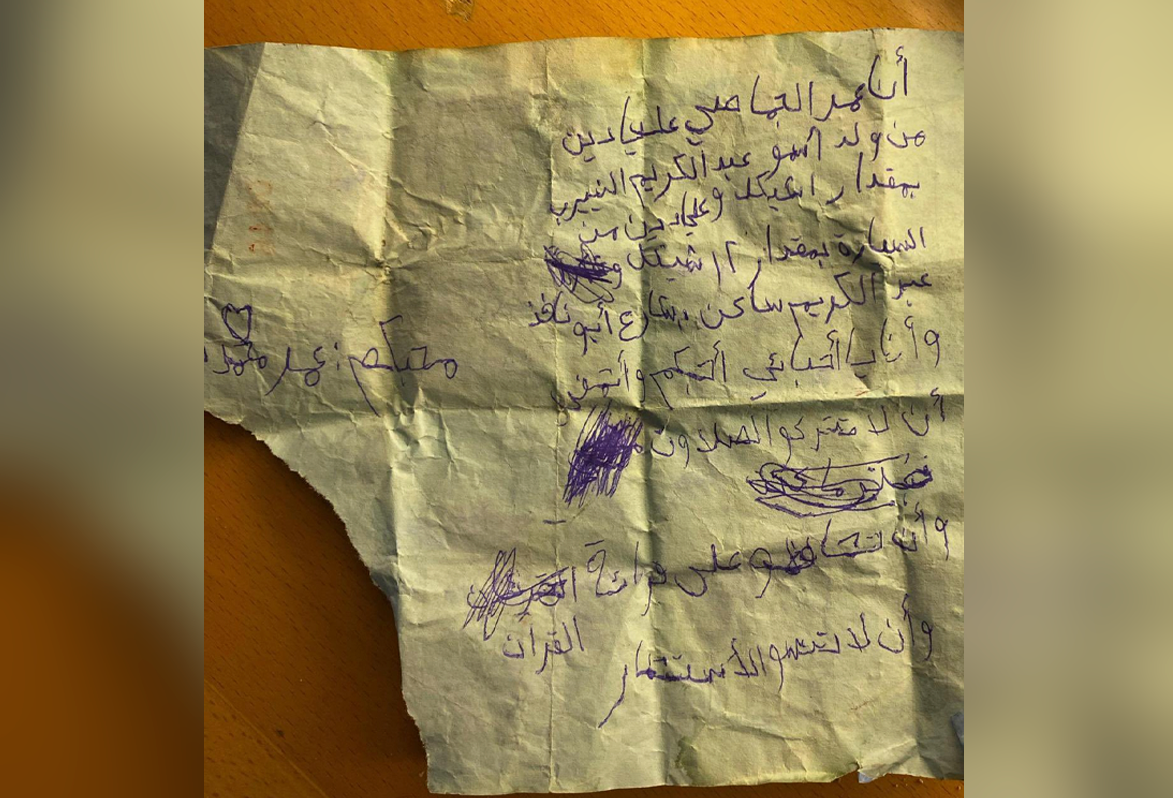 أنا عمر الجماصي عليا دين
من ولد اسمو عبد الكريم النيرب
بمقدار 1 شيكل وعليا دين من
السيارة بمقدار 2 شيكل
عبد الكريم ساكن بشارع أبو نافذ
وأنا يا أحبائي أحبكم وأتمنى
أن لا تتركو الصلاة
وأن تحافظو على قرائة
القران
وأن لا تنسو الأستغفار
محبكم: عمر